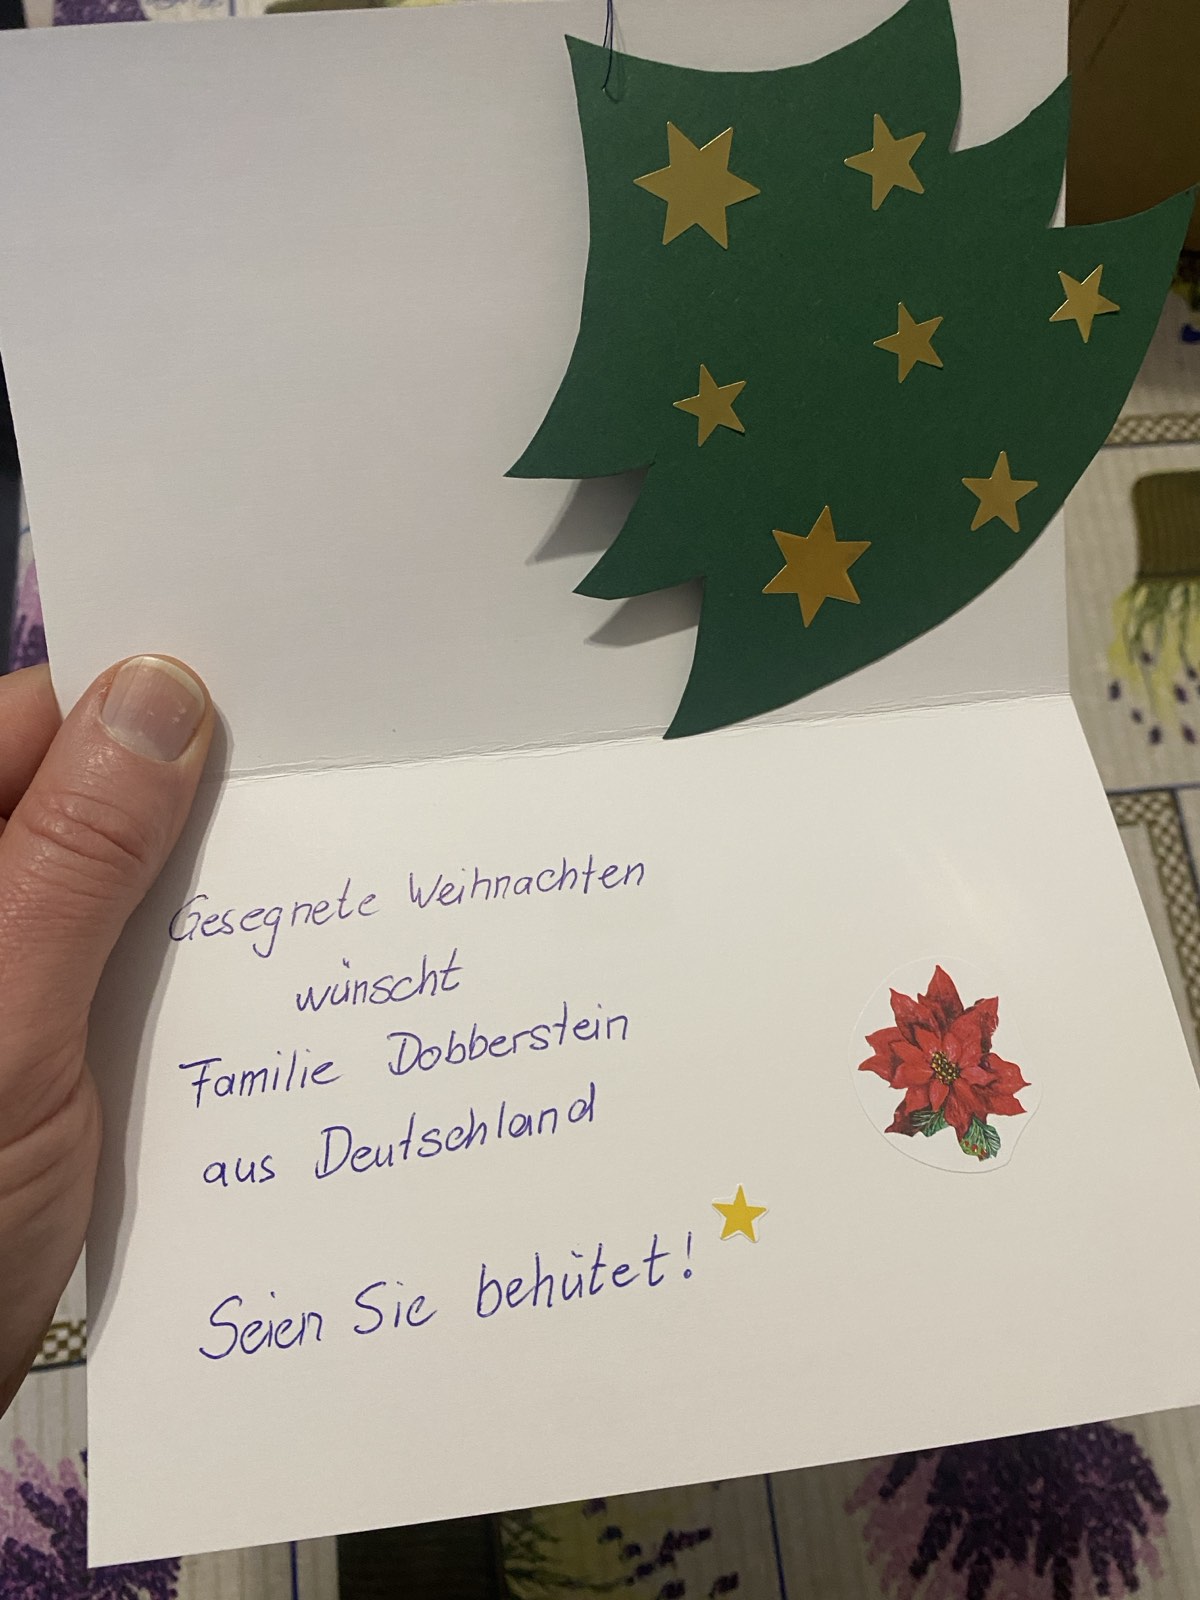 Gesegnete Weihnachten
wünscht
Familie Dobberstein
aus Deutschland
Seien Sie behütet!